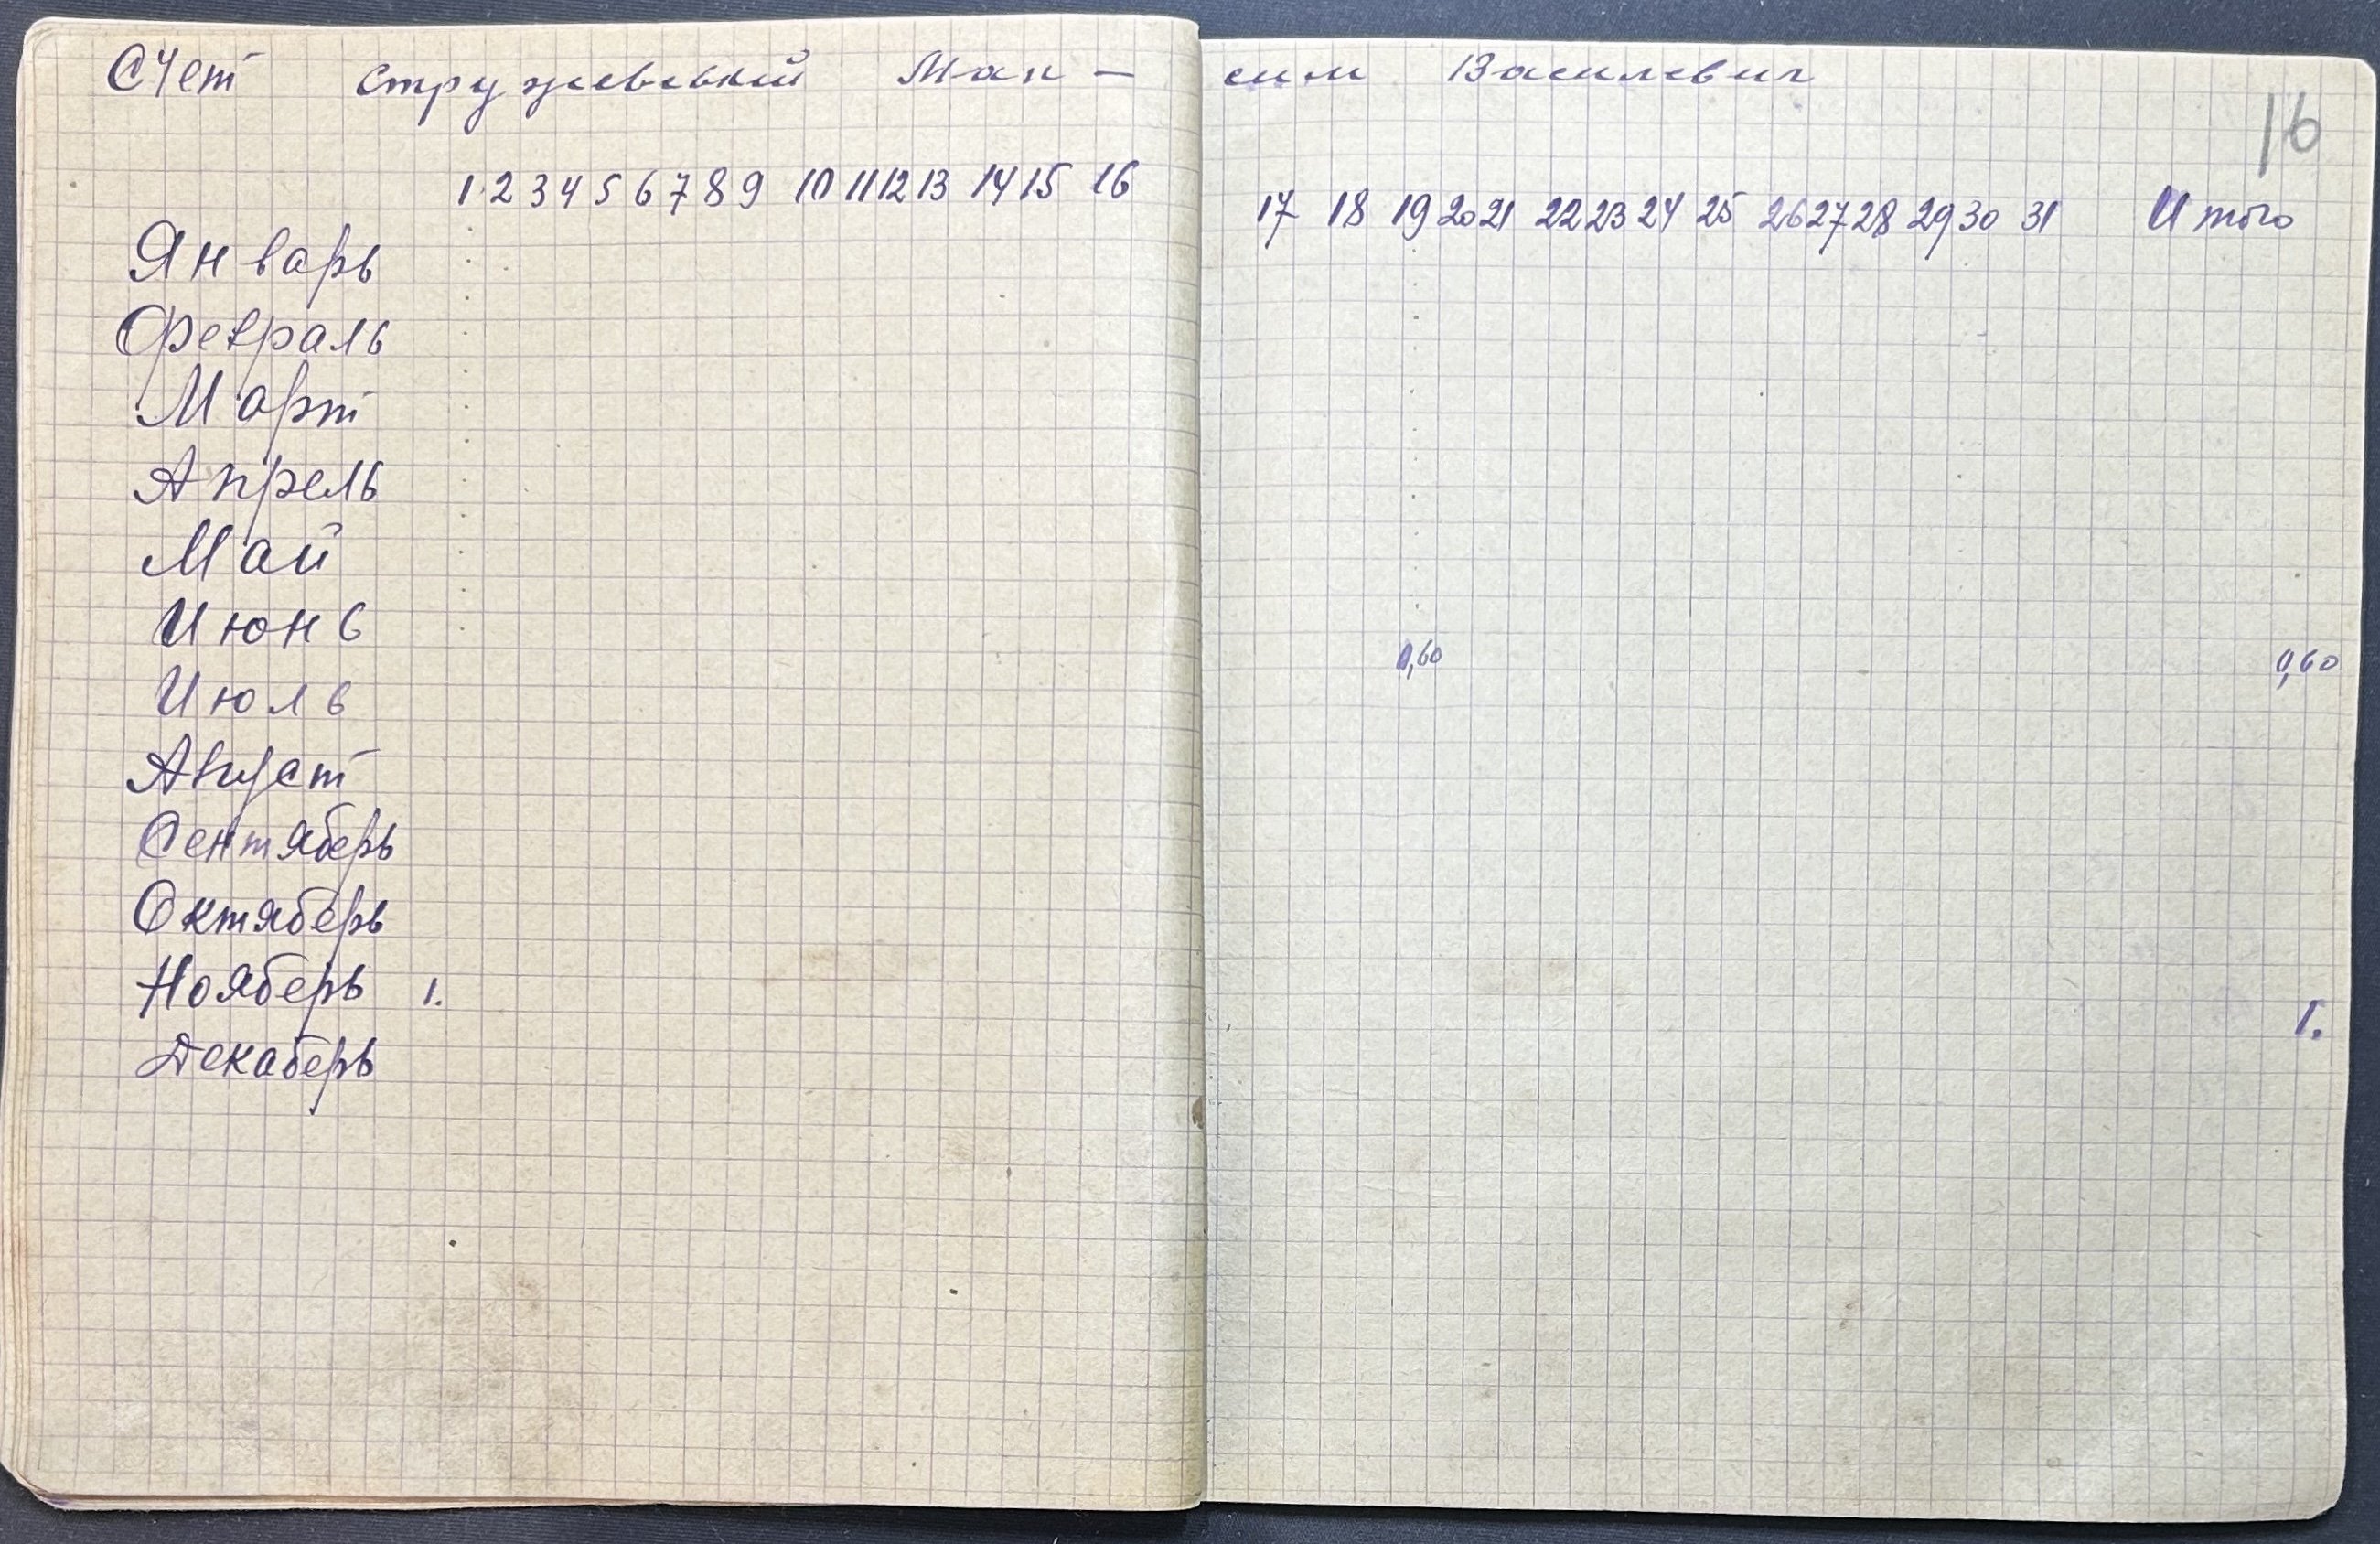 Счет Стружевський Мак - сим Василевич
16
1 2 3 4 5 6 7 8 9 10 11 12 13 14 15 16 17 18 19 20 21 22 23 24 25 26 27 28 29 30 31 Итого
Январь
Февраль
Март
Апрель
Май
Июнь 0,60 0,60
Июль
Август
Сентяберь
Октяберь
Нояберь 1. 1.
Декаберь